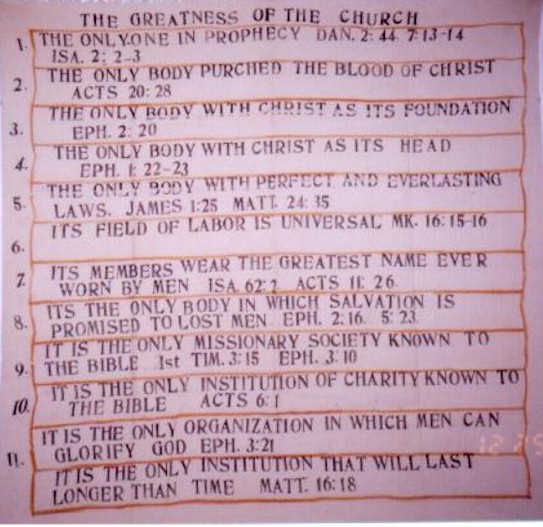 THE GREATNESS OF THE CHURCH
1. THE ONLY.ONE IN PROPHECY DAN. 2: 44 7:13-14
ISA. 2: 2-3
2. THE ONLY BODY PURCHED THE BLOOD OF CHRIST
ACTS 20: 28
THE ONLY BODY WITH CHRIST AS ITS FOUNDATION
3. EPH. 2: 20
THE ONLY BODY WITH CHRIST AS ITS HEAD
4. EPH. 1: 22-23
THE ONLY BODY WITH PERFECT AND EVERLASTING
5. LAWS. JAMES 1:25 MATT. 24: 35
ITS FIELD OF LABOR IS UNIVERSAL MK. 16:15-16
6.
7. ITS MEMBERS WEAR THE GREATEST NAME EVER
WORN BY MEN ISA. 62:2 ACTS 11: 26
8. ITS THE ONLY BODY IN WHICH SALVATION IS
PROMISED TO LOST MEN EPH. 2:16 5:23
IT IS THE ONLY MISSIONARY SOCIETY KNOWN TO
9. THE BIBLE 1st TIM. 3:15 EPH. 3:10
IT IS THE ONLY INSTITUTION OF CHARITY KNOWN TO
10. THE BIBLE ACTS 6:1
IT IS THE ONLY ORGANIZATION IN WHICH MEN CAN
GLORIFY GOD EPH. 3:21
11. IT IS THE ONLY INSTITUTION THAT WILL LAST
LONGER THAN TIME MATT. 16:18